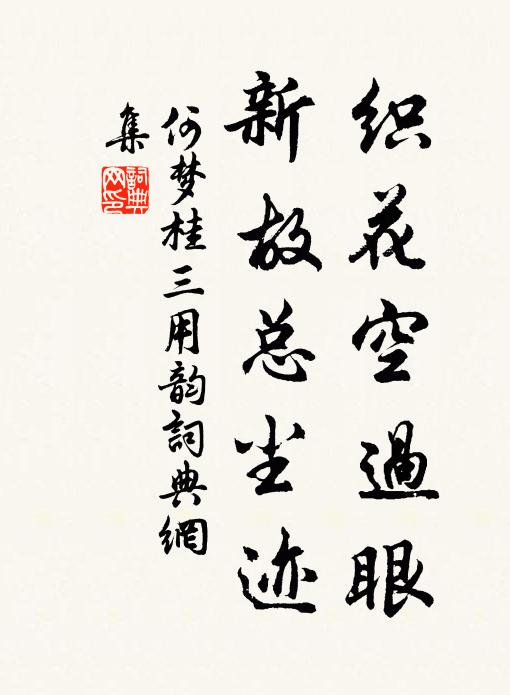 织花空過眼
新故总尘迹
何梦桂三用韵詞典網
集
詞典網印